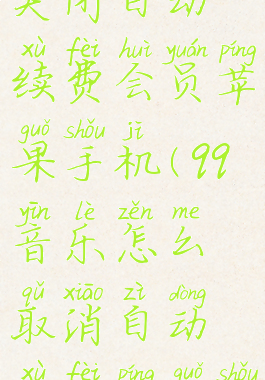 关闭自动
xù fèi huì yuán píng
续费会员苹
guǒ shǒu jī
果手机(99
yīn lè zěn me
音乐怎么
qǔ xiāo zì dòng
取消自动
xù fèi píng guǒ shǒu